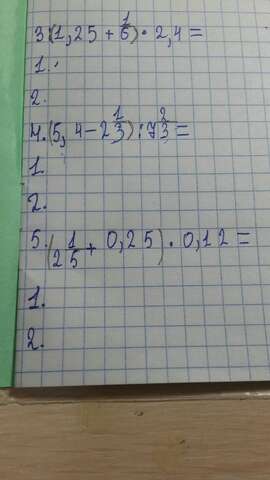 3. (1,25 + 1/6) · 2,4 =
1.
2.
4. (5,4 - 2 1/3) : 7 2/3 =
1.
2.
5. (1/25 + 0,25) · 0,12 =
1.
2.